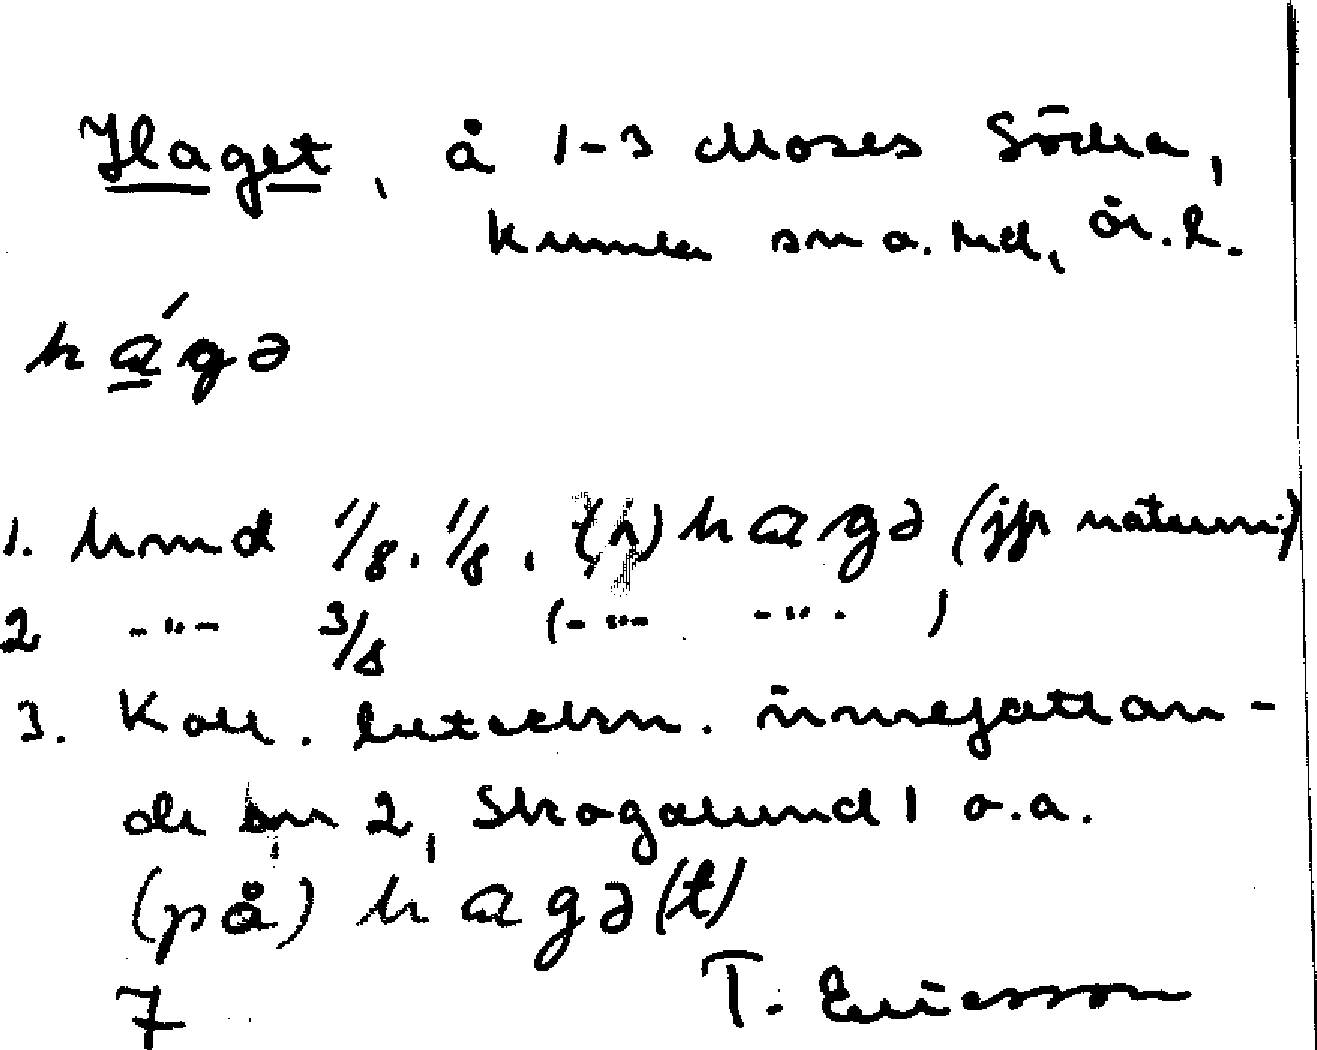 Haget, å 1-3 Moses Södra,
Kumla sn o. hd, Ör. l.
hágə
1. hmd 1/8. 1/8. (i) hagə (jfr naturn.)
2 -"- 3/8 (-"- -"-)
3. Koll. beteckn. innefattan-
de bm 2, Skogalund 1 o.a.
(på) hagə(t)
7 T. Ericsson